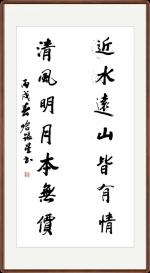 近水遠山皆有情
清風明月本無價
丙戌春